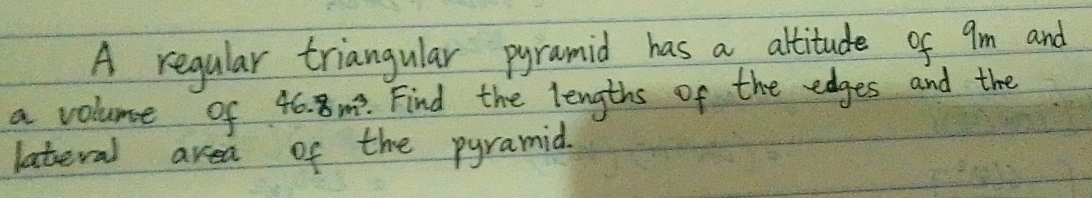 A regular triangular pyramid has a altitude of 9m and
a volume of 46.8m³. Find the lengths of the edges and the
lateral area of the pyramid.